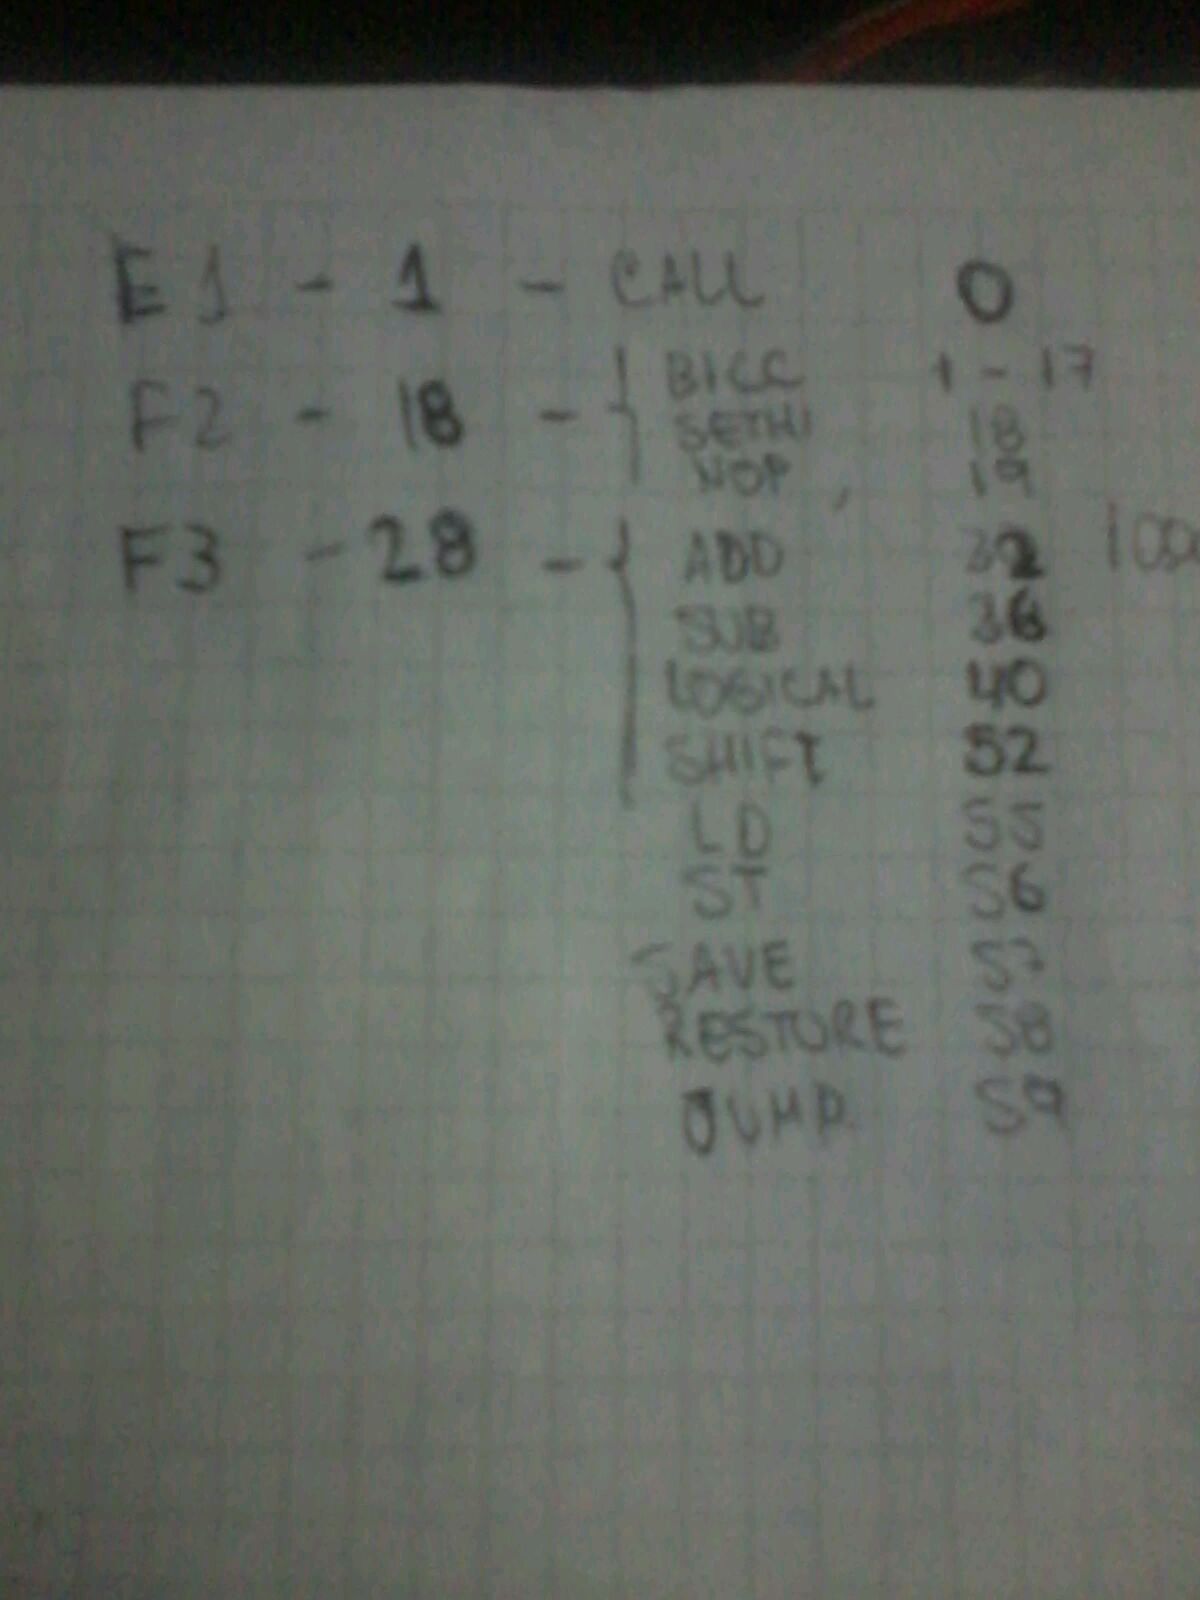 F1 - 1 - CALL 0
F2 - 18 - { BICC 1 - 17
SETHI 18
NOP 19
F3 - 28 - { ADD 32
SUB 36
LOGICAL 40
SHIFT 52
LD 55
ST 56
SAVE 57
RESTORE 58
JUMP 59